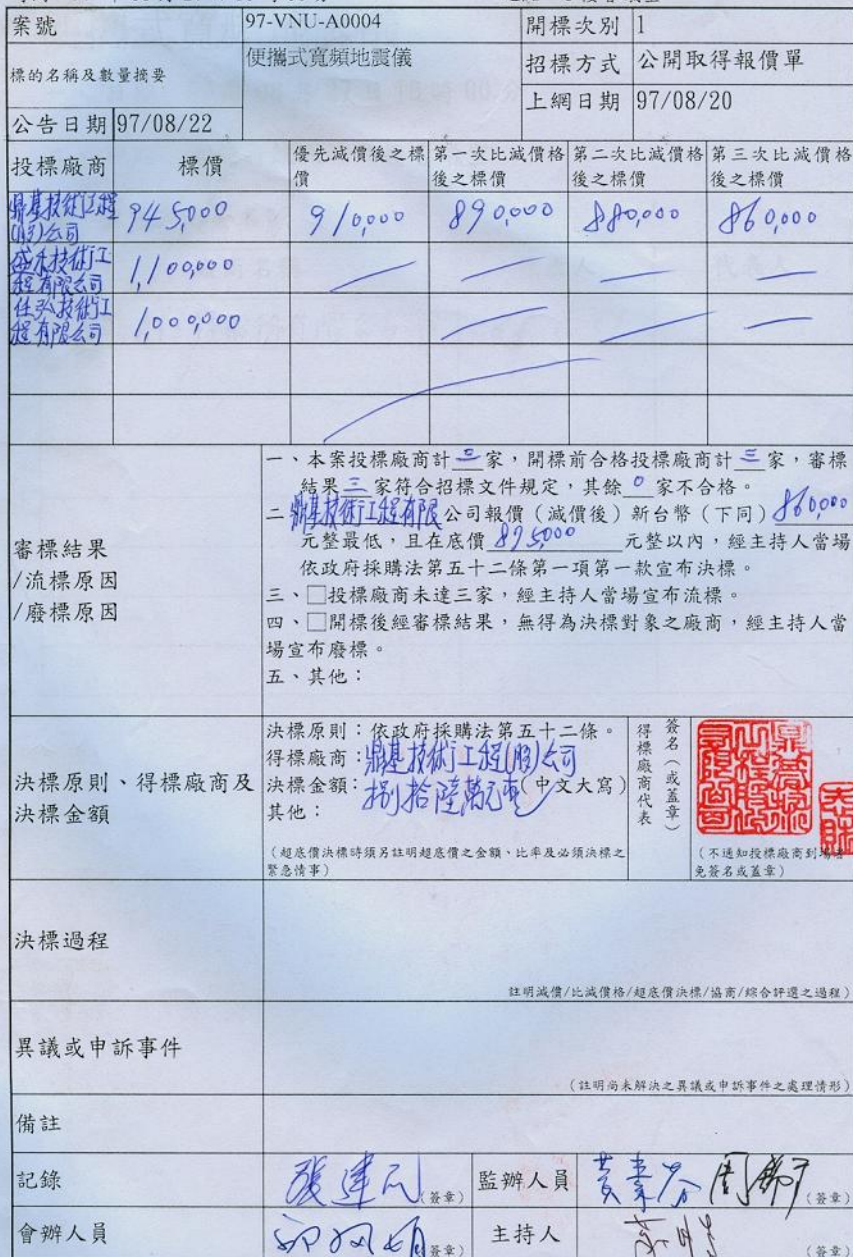 案號 97-VNU-A0004 開標次別 1
標的名稱及數量摘要 便攜式寬頻地震儀 招標方式 公開取得報價單
上網日期 97/08/20
公告日期 97/08/22
投標廠商 標價 優先減價後之標價 第一次比減價格後之標價 第二次比減價格後之標價 第三次比減價格後之標價
鼎基技術工程(股)公司 945,000 910,000 890,000 880,000 860,000
技術工程有限公司 1,100,000
技術工程有限公司 1,000,000
審標結果
/流標原因
/廢標原因
一、本案投標廠商計三家，開標前合格投標廠商計三家，審標
結果三家符合招標文件規定，其餘0家不合格。
二 鼎基技術工程有限公司報價（減價後）新台幣（下同）860,000
元整最低，且在底價 895,000 元整以內，經主持人當場
依政府採購法第五十二條第一項第一款宣布決標。
三、□投標廠商未達三家，經主持人當場宣布流標。
四、□開標後經審標結果，無得為決標對象之廠商，經主持人當
場宣布廢標。
五、其他：
決標原則、得標廠商及
決標金額
決標原則：依政府採購法第五十二條。
得標廠商：鼎基技術工程(股)公司
決標金額：捌拾陸萬元整（中文大寫）
其他：
（超底價決標時須另註明超底價之金額、比率及必須決標之
緊急情事）
得標廠商代表
簽名（或蓋章）
（不通知投標廠商到場者
免簽名或蓋章）
決標過程
註明減價/比減價格/超底價決標/協商/綜合評選之過程）
異議或申訴事件
（註明尚未解決之異議或申訴事件之處理情形）
備註
記錄 （簽章） 監辦人員 （簽章）
會辦人員 （簽章） 主持人 （簽章）